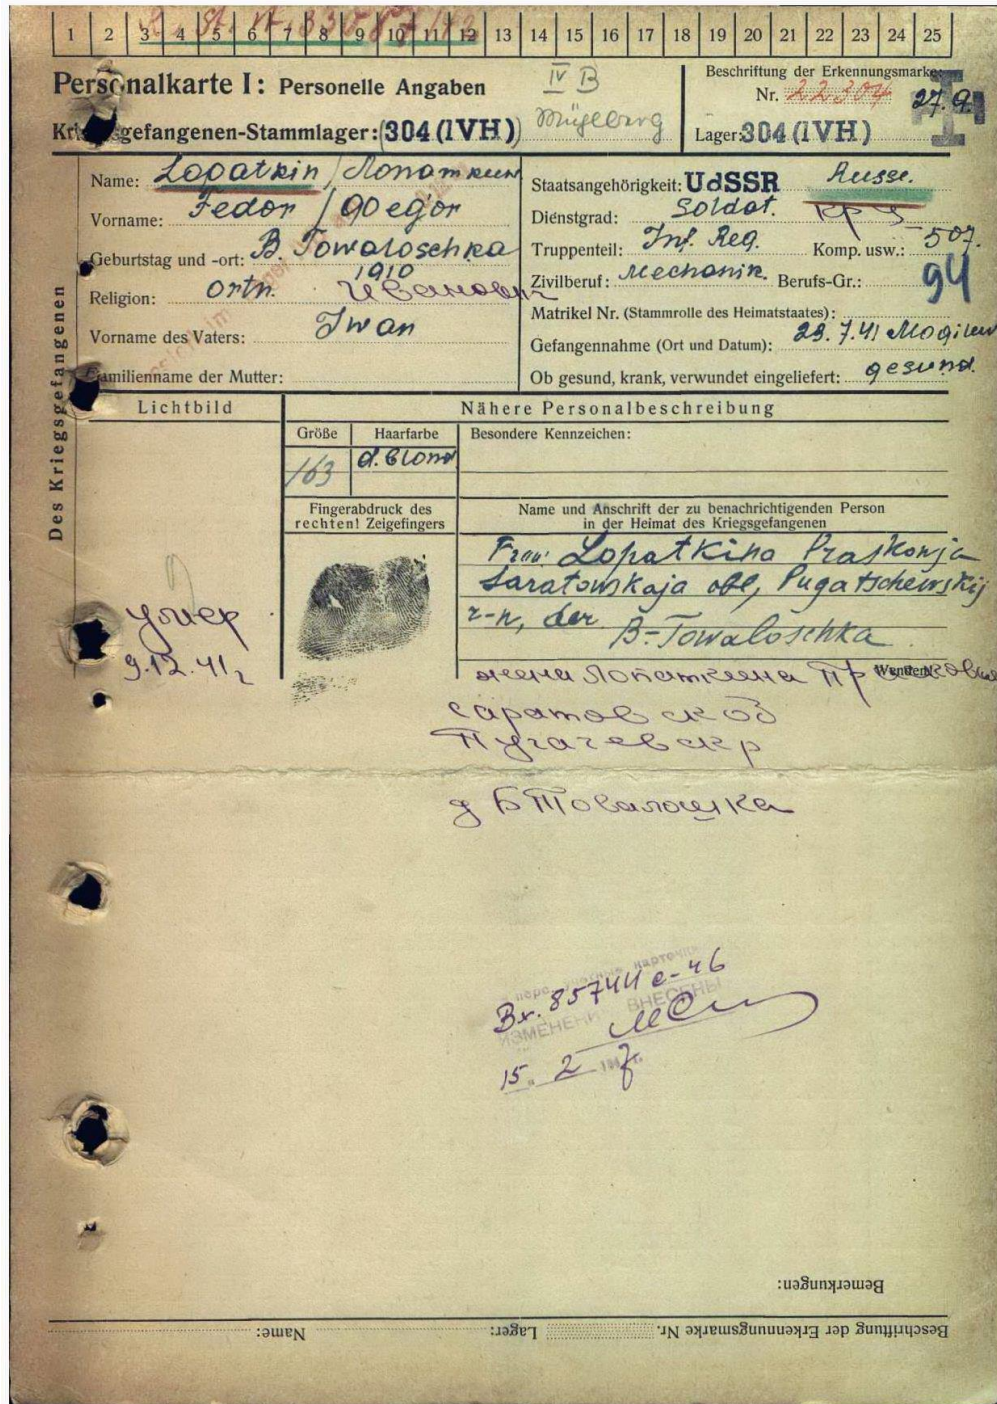 1 2 3 4 5 6 7 8 9 10 11 12 13 14 15 16 17 18 19 20 21 22 23 24 25
Personalkarte I: Personelle Angaben
IV B
Kriegsgefangenen-Stammlager: 304 (IVH)
Beschriftung der Erkennungsmarke
Nr. 22304 27.9.
Lager: 304 (IVH)
Des Kriegsgefangenen
Name: Lopatkin / Лопаткин
Vorname: Fedor /
Geburtstag und -ort: B. Towaloschka
1910
Religion: orth. Иванович
Vorname des Vaters: Iwan
Familienname der Mutter:
Staatsangehörigkeit: UdSSR Russe.
Dienstgrad: Soldat.
Truppenteil: Inf. Reg. Komp. usw.: 507.
Zivilberuf: Mechanik. Berufs-Gr.: 94
Matrikel Nr. (Stammrolle des Heimatstaates):
Gefangennahme (Ort und Datum): 29.7.41 Mogilew
Ob gesund, krank, verwundet eingeliefert: gesund.
Lichtbild
Nähere Personalbeschreibung
Größe Haarfarbe Besondere Kennzeichen:
163 d. blond
Fingerabdruck des
rechten! Zeigefingers
Name und Anschrift der zu benachrichtigenden Person
in der Heimat des Kriegsgefangenen
Frau Lopatkina Praskowja
Saratowskaja obl, Pugatschewskij
r-n, der.
B-Towaloschka
Wenden!
умер
9.12.41г
жена Лопаткина
саратовск об
Пугачевск р
д Б Товалошка
Вх. 85744с-46
ИЗМЕНЕНИ ВНЕСЕНЫ
15. 2 7
Bemerkungen:
Beschriftung der Erkennungsmarke Nr. Lager: Name: